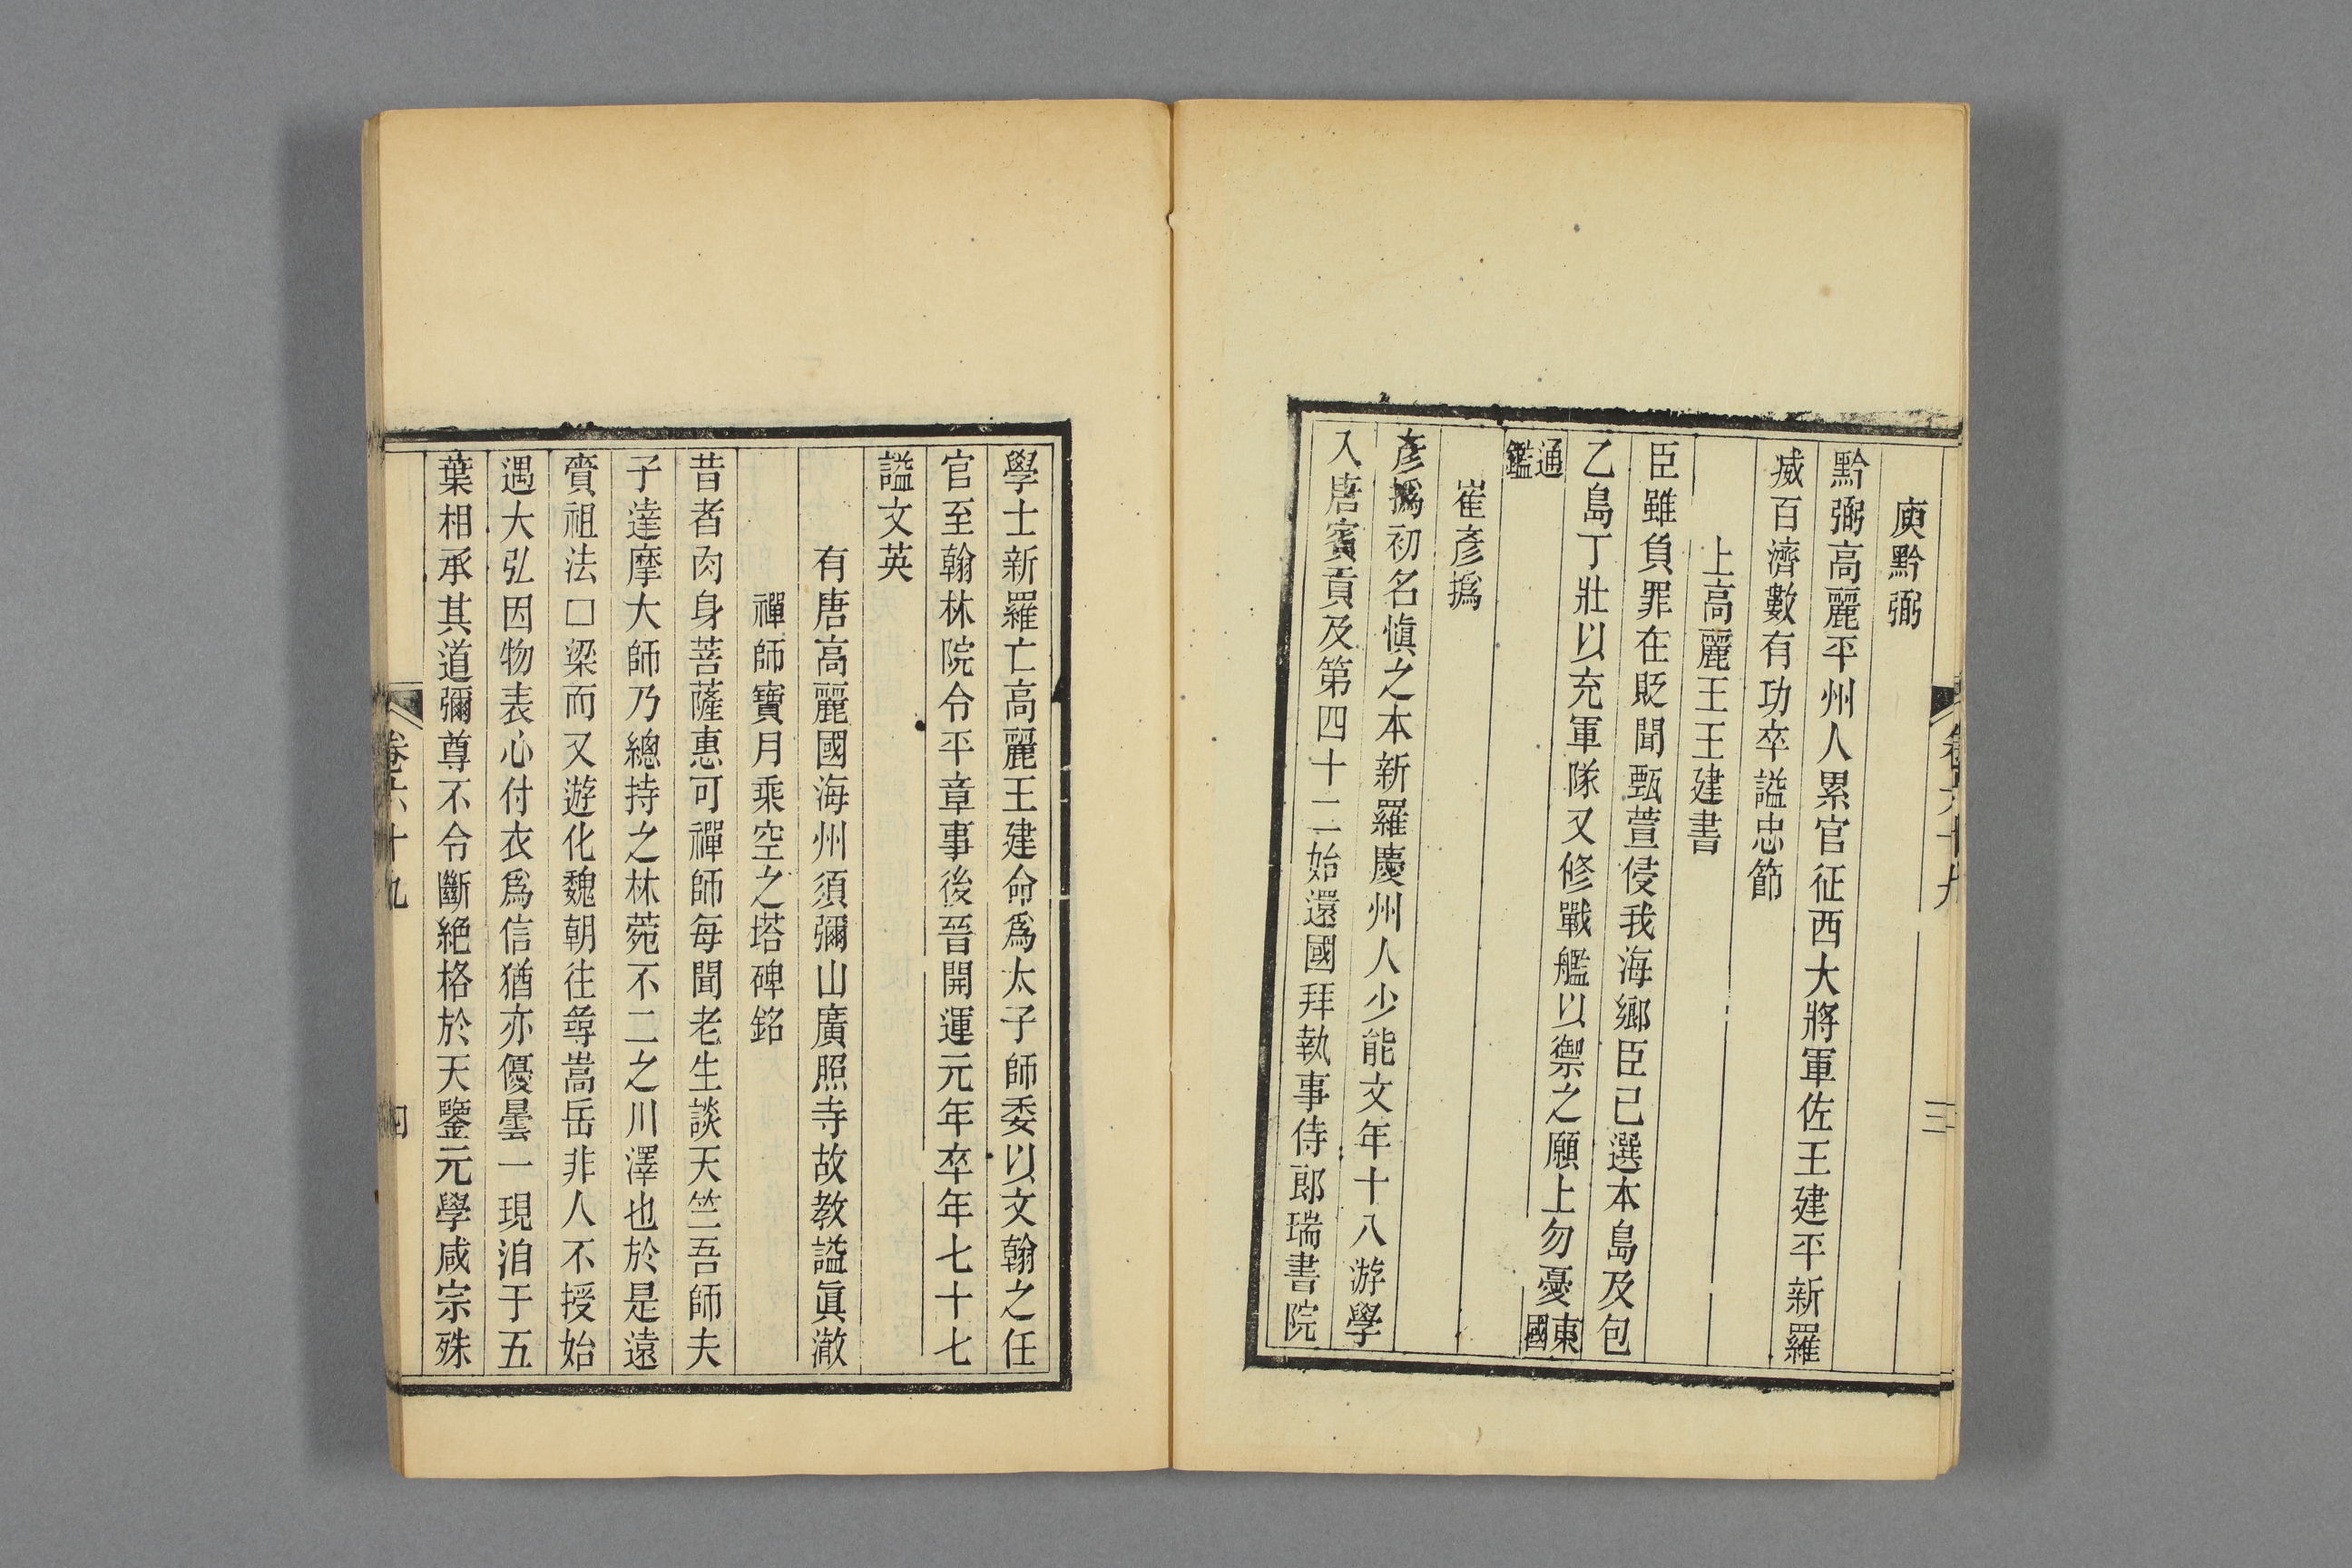 庾黔弼
黔弼高麗平州人累官征西大將軍佐王建平新羅
威百濟數有功卒謚忠節
上高麗王王建書
臣雖負罪在貶聞甄萱侵我海鄉臣已選本島及包
乙島丁壯以充軍隊又修戰艦以禦之願上勿憂東國
通鑑
崔彥撝
彥撝初名慎之本新羅慶州人少能文年十八游學
入唐賓貢及第四十二始還國拜執事侍郎瑞書院
學士新羅亡高麗王建命爲太子師委以文翰之任
官至翰林院令平章事後晉開運元年卒年七十七
謚文英
有唐高麗國海州須彌山廣照寺故教謚眞澈
禪師寶月乘空之塔碑銘
昔者肉身菩薩惠可禪師每聞老生談天竺吾師夫
子達摩大師乃總持之林菀不二之川澤也於是遠
賷祖法□梁而又遊化魏朝往尋嵩岳非人不授始
遇大弘因物表心付衣爲信猶亦優曇一現洎于五
葉相承其道彌尊不令斷絶格於天鑒元學咸宗殊
卷六十九
四